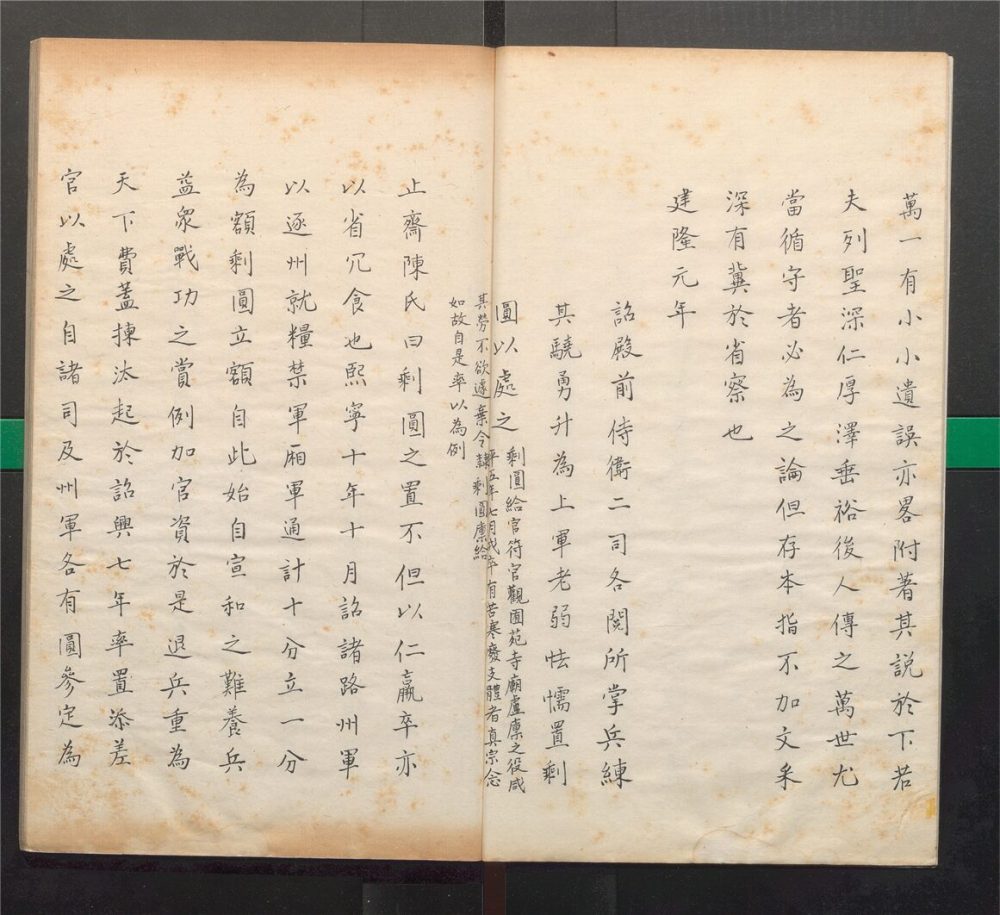 萬一有小小遺誤亦畧附著其説於下若
夫列聖深仁厚澤垂裕後人傳之萬世尤
當循守者必為之論但存本指不加文采
深有冀於省察也
建隆元年
詔殿前侍衛二司各閱所掌兵練
其驍勇升為上軍老弱怯懦置剩
圓以處之
剩圓給官符官觀園苑寺廟盧廪之役咸
平五年七月戍卒有苦寒癈支體者真宗念
其勞不欲遽棄令隷剩圓廪給
如故自是率以為例
止齋陳氏曰剩圓之置不但以仁羸卒亦
以省冗食也熙寧十年十月詔諸路州軍
以逐州就糧禁軍廂軍通計十分立一分
為額剩圓立額自此始自宣和之難養兵
益衆戰功之賞例加官資於是退兵重為
天下費蓋揀汰起於詔興七年率置添差
官以處之自諸司及州軍各有圓參定為